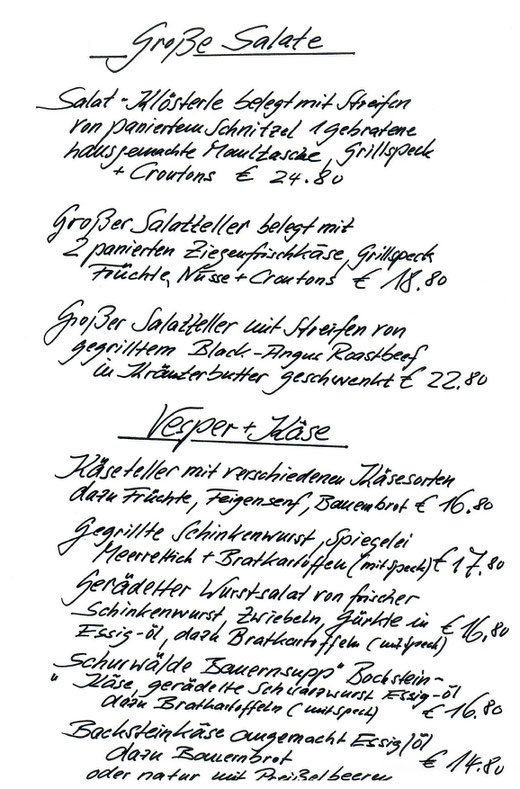 Große Salate
Salat-Klösterle belegt mit Streifen
von paniertem Schnitzel 1 gebratene
hausgemachte Maultasche, Grillspeck
+ Croutons € 24.80
Großer Salatteller belegt mit
2 panierten Ziegenfrischkäse, Grillspeck
Früchte, Nüsse + Croutons € 18.80
Großer Salatteller mit Streifen von
gegrilltem Black-Angus Roastbeef
in Kräuterbutter geschwenkt € 22.80
Vesper + Käse
Käseteller mit verschiedenen Käsesorten
dazu Früchte, Feigensenf, Bauernbrot € 16.80
Gegrillte Schinkenwurst, Spiegelei
Meerrettich + Bratkartoffeln (mit Speck) € 17.80
Gerädelter Wurstsalat von frischer
Schinkenwurst, Zwiebeln, Gürkle in € 16,80
Essig-öl, dazu Bratkartoffeln (mit Speck)
Schurwälde Bauernsupp" Backstein-
" Käse, gerädelte Schwarzwurst Essig-öl
dazu Bratkartoffeln (mit Speck) € 16.80
Backsteinkäse angemacht Essig/öl
dazu Bauernbrot € 14.80
oder natur mit Preißelbeeren